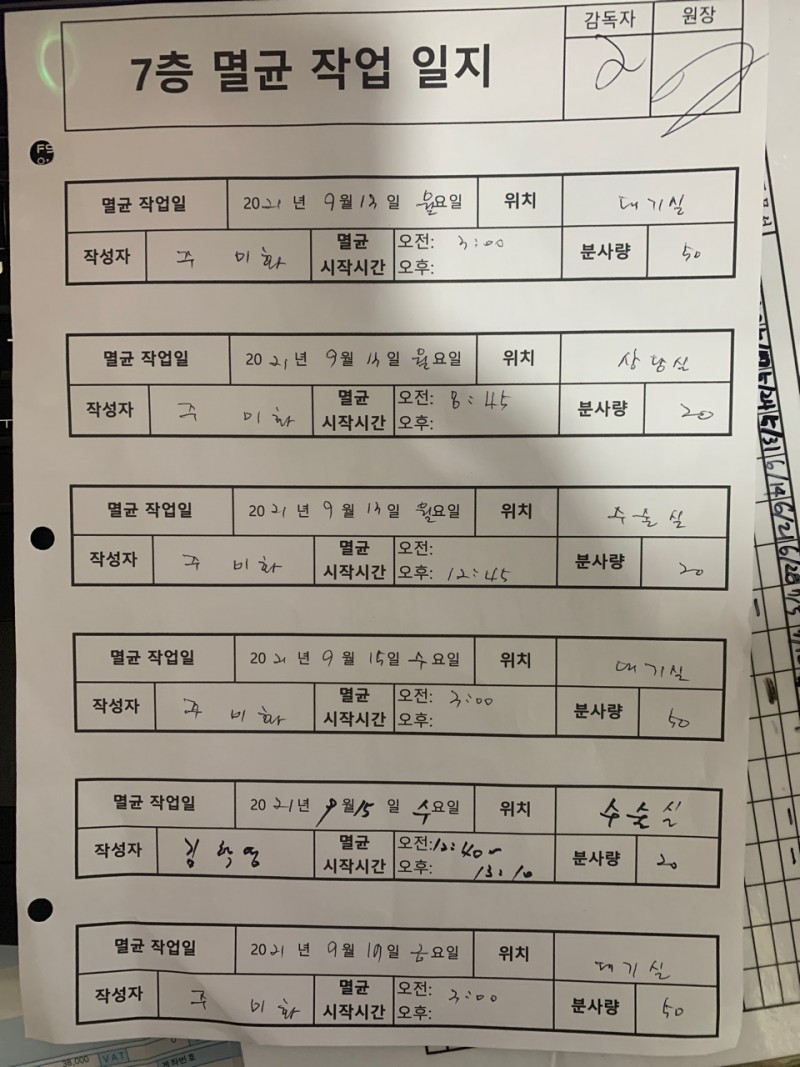 감독자 원장
7층 멸균 작업 일지
멸균 작업일 2021년 9월 13일 월요일 위치 대기실
작성자 주미화 멸균 시작시간 오전: 3:00 오후: 분사량 50
멸균 작업일 2021년 9월 13일 월요일 위치 상담실
작성자 주미화 멸균 시작시간 오전: 8:45 오후: 분사량 20
멸균 작업일 2021년 9월 13일 월요일 위치 수술실
작성자 주미화 멸균 시작시간 오전: 오후: 12:45 분사량 20
멸균 작업일 2021년 9월 15일 수요일 위치 대기실
작성자 주미화 멸균 시작시간 오전: 3:00 오후: 분사량 50
멸균 작업일 2021년 9월 15일 수요일 위치 수술실
작성자 멸균 시작시간 오전: 12:40~ 오후: 13:10 분사량 20
멸균 작업일 2021년 9월 일 금요일 위치 대기실
작성자 주미화 멸균 시작시간 오전: 3:00 오후: 분사량 50
35,000 VAT
계좌번호